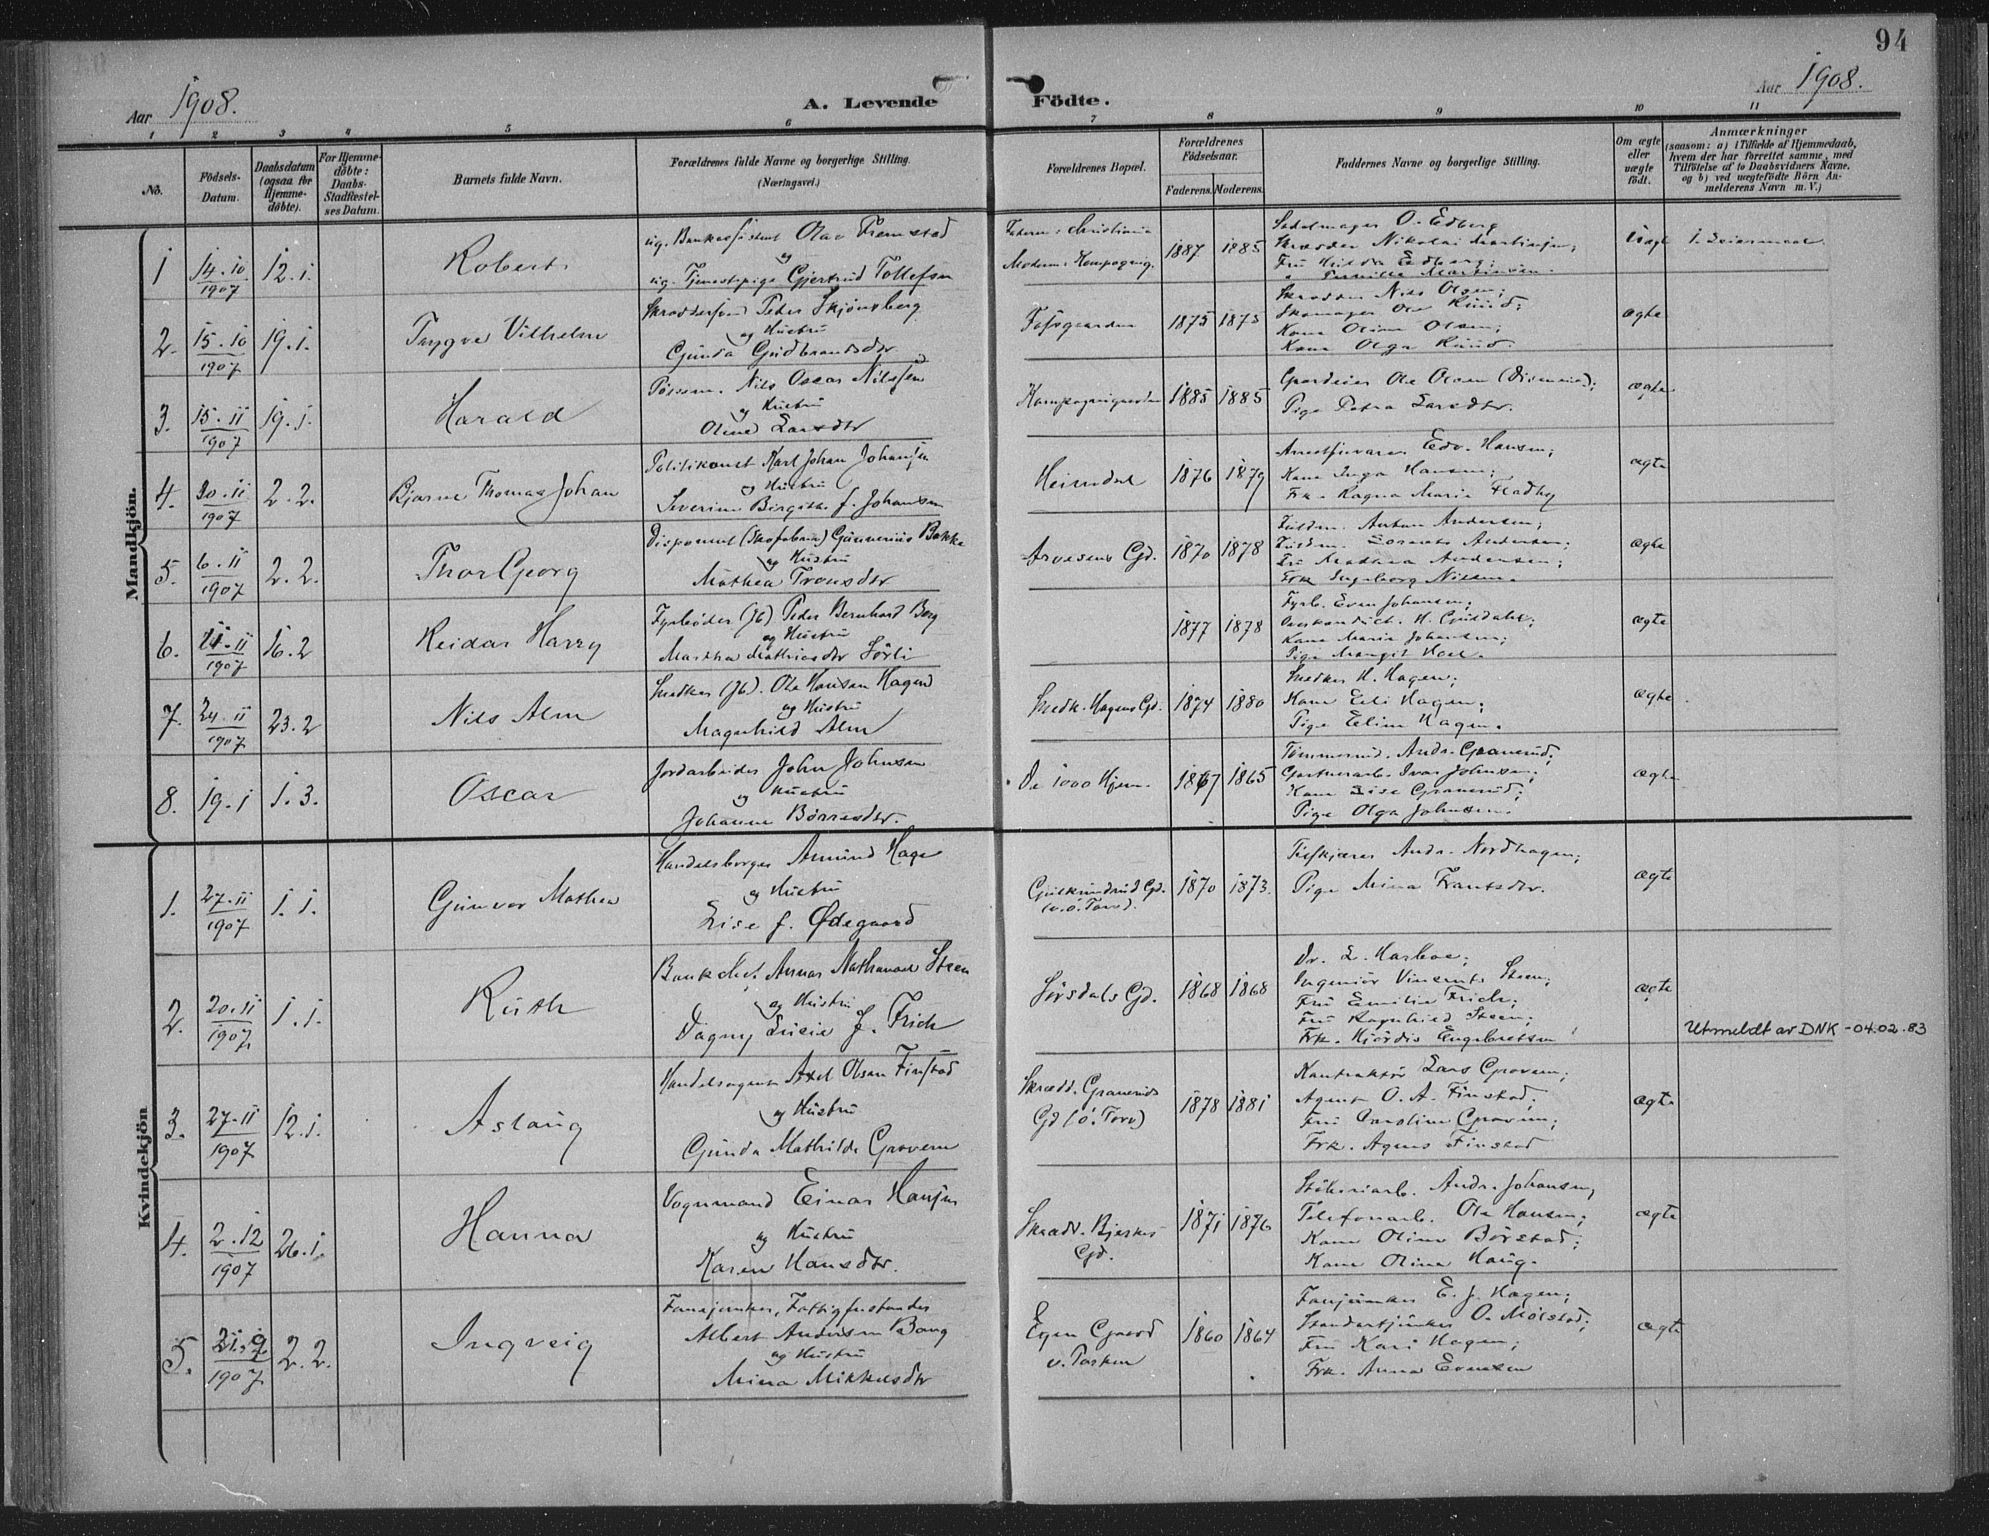 94
Aar 1908.
A. Levende Födte.
Aar 1908.
1 2 3 4 5 6 7 8 9 10 11
No.
Födsels-Datum.
Daabsdatum (ogsaa for Hjemme-döbte).
For Hjemme-döbte: Daabs-Stadfæstel-ses Datum.
Barnets fulde Navn.
Forældrenes fulde Navne og borgerlige Stilling.
(Næringsvei.)
Forældrenes Bopæl.
Forældrenes Födselsaar.
Faderens. Moderens.
Faddernes Navne og borgerlige Stilling.
Om ægte eller uægte födt.
Anmærkninger
(saasom: a) i Tilfælde af Hjemmedaab,
hvem der har forrettet samme, med
Tilföielse af to Daabsvidners Navne,
og b) ved uægtefödte Börn An-
melderens Navn m. V.)
Mandkjön.
1 14.10 1907 12.1. Robert.
ug. Olav Fremstad
og
ug. Tjenestepige Gjertrud Tollefsen
Faderen: Christiania
Moderen:
1887 1885
Sadelmager O. Edberg
Skrædder Nikolai Martinsen;
Fru Hilda Edberg;
Martinsen.
Uægte
2. 15.10 1907 19.1. Trygve Vilhelm
Peder Skjönsberg
og Hustru
Gunda Gudbrandsdtr
1875 1875
Skrædder Nils Olsen;
Skomager Ole Ruud;
Kone Oline Olsen;
Kone Olga Ruud.
ægte
3. 15.11 1907 19.1. Harald
Nils Oscar Nilssen
og Hustru
Oline Larsdtr
1885 1885
Gardeier Ole Olsen
Pige Petra Larsdtr.
ægte
4. 30.11 1907 2.2. Bjarne Thomas Johan
Politikonst Karl Johan Johansen
og Hustru
Severine Birgitte f. Johansen
Heimdal
1876 1879
Arrestforvarer Edv. Hansen;
Kone Inga Hansen;
Frk. Ragna Maria Fladby
ægte
5. 6.11 1907 2.2. Thor Georg
Disponent (Skofabrik) Gunnerius Bakke
og Hustru
Mathea Tronsdtr
Arvesens Gd.
1870 1878
Fuldm. Anton Andersen;
Fuldm. Andersen;
Fru Mathea Andersen;
Frk Ingeborg Nilsen.
ægte
6. 11.11 1907 16.2 Reidar Harry
Fyrböder (Jb) Peder Bernhard Berg
og Hustru
Martha Mathisdtr Sörli
1877 1878
Fyrb. Even Johansen;
Kone Maria Johansen;
Pige Margit
ægte
7. 24.11 1907 23.2 Nils Alm
Snedker (Jb). Ole Hansen Hagen
og Hustru
Magnhild Alm
Snedk. Hagens Gd.
1874 1880
Snedker H. Hagen;
Kone Eli Hagen;
Pige Eline Hagen.
ægte.
8. 19.1 1.3. Oscar
Jordarbeider John Johnsen
og Hustru
Johanne Börresdtr.
De 1000 Hjem.
1867 1865
Tömmermd. Andr. Granerud;
Gartnerarb. Ivar Johnsen;
Kone Lise Granerud;
Pige Olga Johnsen.
ægte
Kvindekjön
1. 27.11 1907 1.1. Gunvor Mathea
Handelsborger Amund Hage
og Hustru
Lise f. Ödegaard
1870 1873.
Andr. Nordhagen;
Pige Mina Frantsdtr.
ægte
2. 20.11 1907 1.1. Ruth
Nathanael Steen
og Hustru
Dagny Lucie f. Frich
Sörsdals Gd.
1868 1868
Dr. L. Harboe;
Ingeniör Vincent Steen;
Fru Emilie Frich;
Fru Ragnhild Steen;
Frk. Hjördis Engebretsen
ægte
Utmeldt av DNK - 04.02.83
3. 27.11 1907 12.1. Aslaug
Handelsagent Axel Olsen Finstad
og Hustru
Gunda Mathilde Grovem
Skrædd. Graneruds
Gd (ö. Torv)
1878 1881
Kontraktör Lars Grovem;
Agent O. A. Finstad;
Fru Caroline Grovem;
Frk. Agnes Finstad
ægte
4. 2.12 1907 26.1. Hanna
Vognmand Einar Hansen
og Hustru
Karen Hansdtr.
Skrædd. Bjerkes
Gd.
1871 1876
Andr. Johansen;
Telefonarb. Ole Hansen;
Kone Oline Börstad;
Kone Olina Haug.
ægte
5. 21.9 1907 2.2. Ingveig
Fanejunker, Fattigforstander
Albert Andersen Bang
og Hustru
Mina Mikkelsdtr
Egen Gaard
v. Parken
1860 1864
Fanejunker E. J. Hagen;
Standartjunker O. Mölstad;
Fru Kari Hagen;
Frk. Anna Evensen
ægte